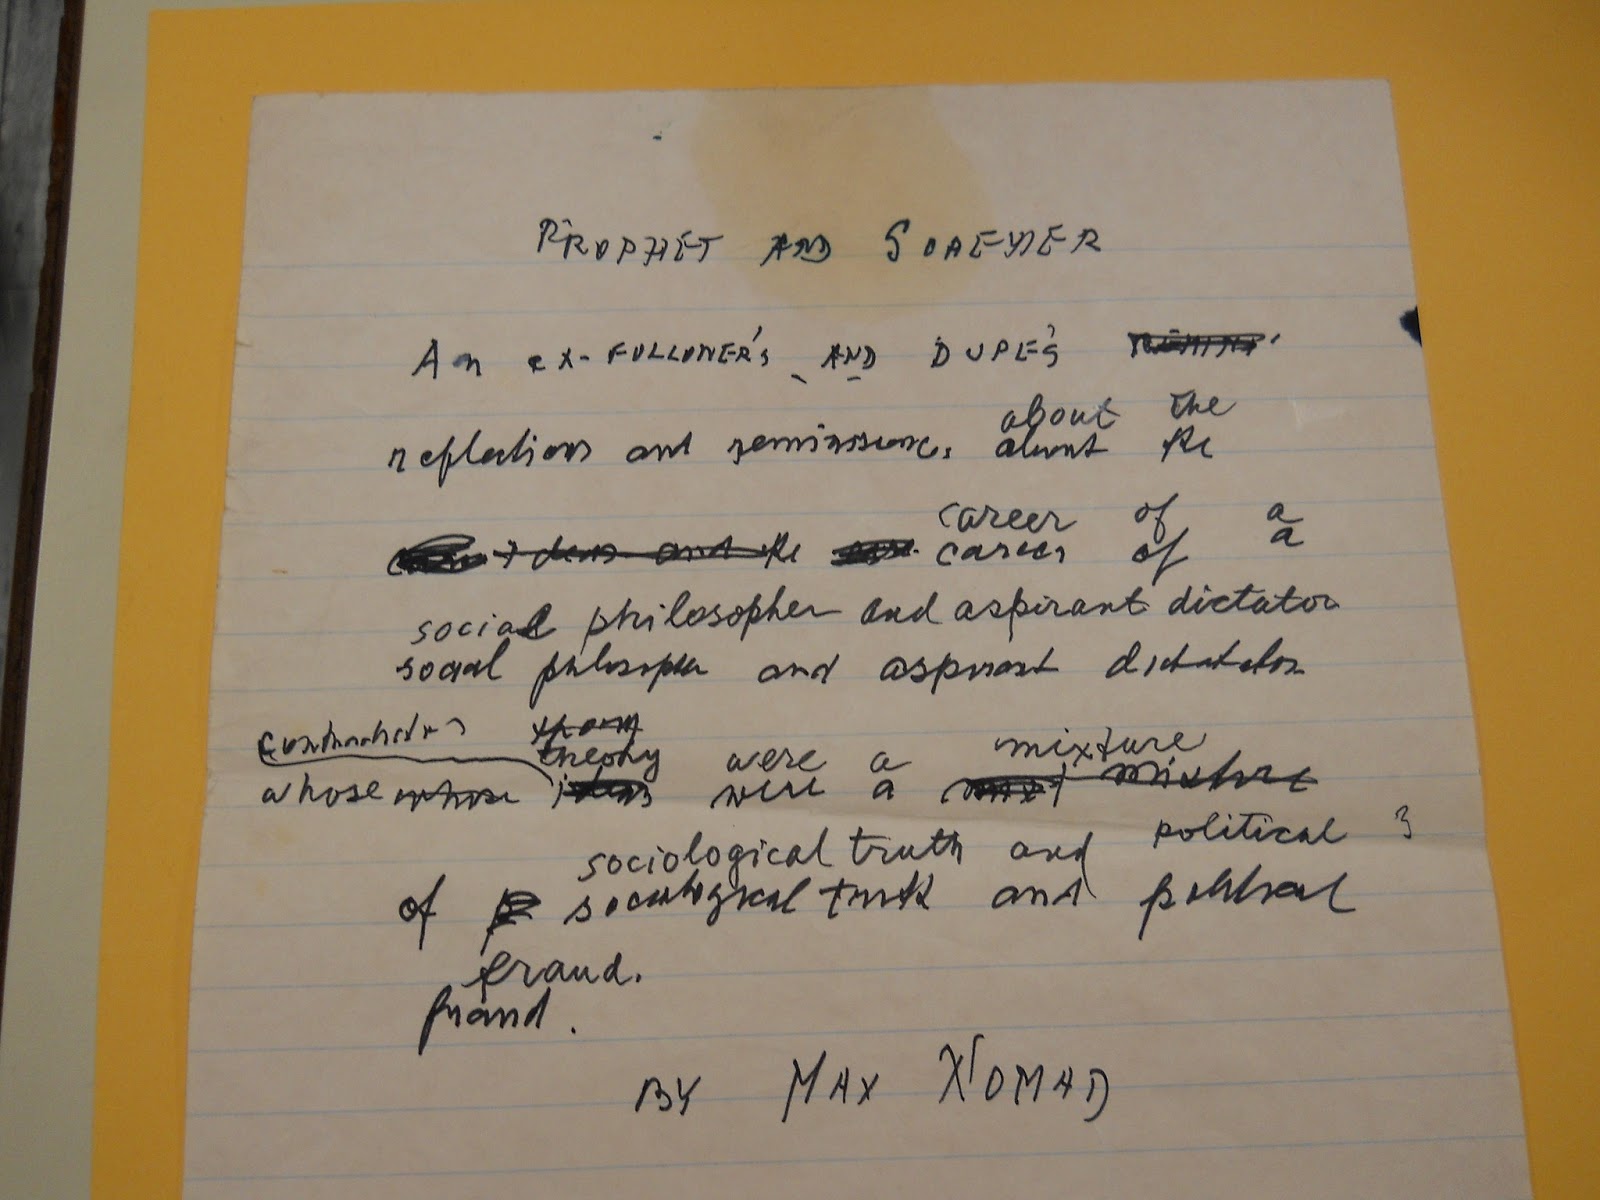 PROPHET AND SCHEMER
An ex-FOLLOWER'S AND DUPE'S
about the
reflections and reminiscences about the
career of a
ideas and the career of a
social philosopher and aspirant dictator
social philosopher and aspirant dictator
theory were a mixture
whose whose ideas were a mixture
sociological truth and political
of sociological truth and political
fraud.
fraud.
BY MAX NOMAD